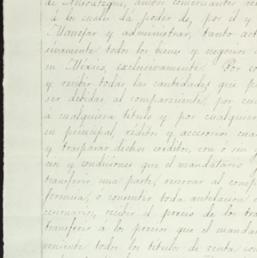 de Aliresequi, ambos comerciantes re
á los cuales da poder de, por él y
Manejar y administrar, tanto act
sivamente todos los bienes y negocios
en Méxici, exclusivamente. Por co
y recibir todas las cantidades que p
ser debidas al compareciente, por cu
á cualquiera título y por cualquier
en principal, réditos y accesorios, cua
y traspasar dichos créditos, con ó sin
cios y condiciones que el mandatario
transferir una parte, reservar al comp
formen, ó consentir toda antelación
cesionario, recibir el precio de los tra
transferir á los precios que el mandat
veniente todos los títulos de renta con